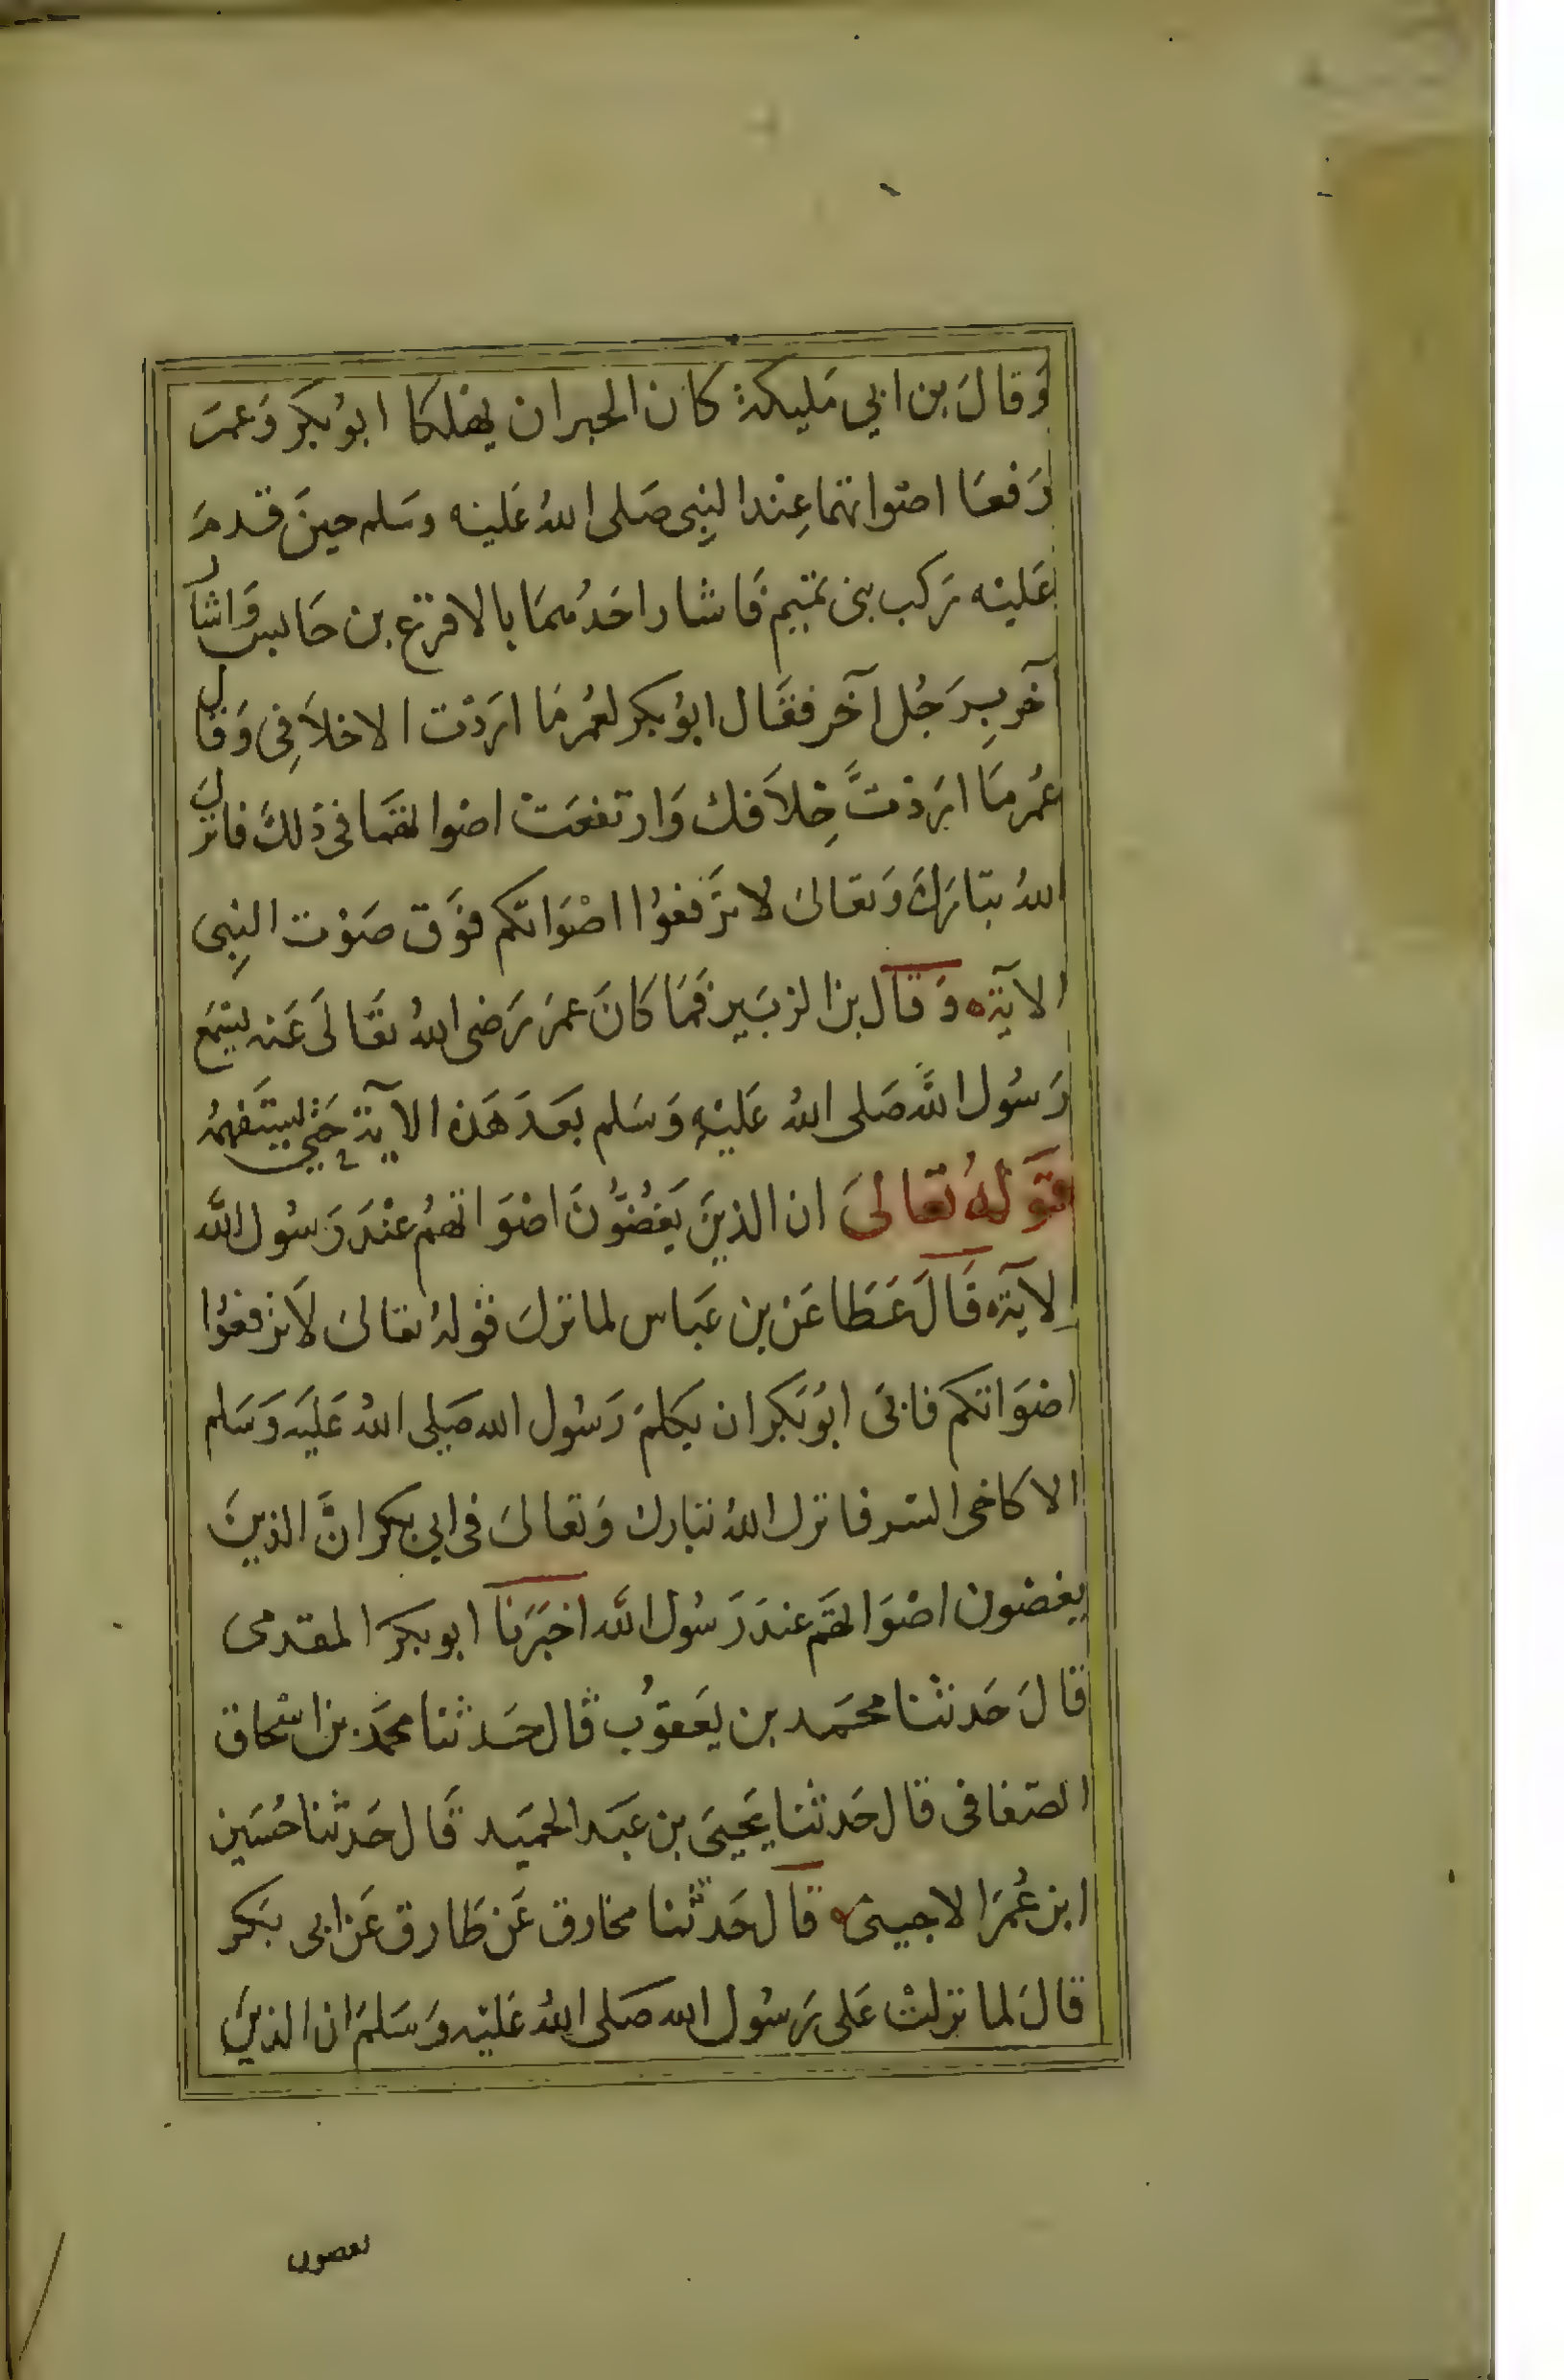 وَقالَ بن ابي مَليكة كان الحبران يهلكا ابوُبكر وَعمَر
رَفعَا اصْواتهما عِنْد النبِى صَلى اللهُ عَليْه وسَلم حينَ قدمَ
عَليْه رَكب بنى تمَيم فَاشار احَدُهمَا بالاقرَع بن حَابس وَاشار
آخر بِرَجُل آخَر فقَال ابوُبكر لعُمر مَا ارَدْت الاخلاَفِى وَقال
عُمر مَا ارَدْتَّ خِلاَفك وَارتفعَتْ اصْواتهمَا فى ذلكَ فانزلَ
اللهُ تبَارَكَ وَتعَالىَ لا ترَفعوُا اصْوَاتكم فوَق صَوْت النبِىَ
الآيَة وَقال بن الزبَير فمَا كانَ عمَر رَضى اللهُ تعَالَى عَنه يسْمَع
رَسُول اللَّه صَلى اللهُ عَليْهِ وَسَلم بَعَدَ هَذه الآيَة حَتى يَسْتَفهمهُ
قوَلهُ تعَالىَ ان الذينَ يَغُضوُّنَ اصْوَاتهمُ عنْدَ رَسُول اللَّه
الآيَة قَالَ عَطَا عَن بن عَبَاس لما نزلَ قوْلهُ تعَالىَ لاَ ترْفعوُا
اصْوَاتكم فابىَ ابوُبَكر ان يكلمَ رَسُول الله صَلى اللهُ عَليَه وَسَلم
الا كاخى السر فانزل اللهُ تبَارك وَتعَالىَ فى ابى بكر انَّ الذينَ
يغضون اصْوَاتهَم عندَ رَسُول اللَّه اخبَرَنا ابوبكر المقدمىَ
قالَ حَدثنا محمَد بن يَعقوُب قَال حَدثنا محمَد بن اسْحاق
الصغانى قال حَدثنا يَحيىَ بن عبَد الحميَد قَال حَدثنا حُسَين
ابن عُمَر الاحمسى قال حَدثنا مخارق عَن طَارق عَن ابى بَكر
قالَ لما نزلتْ عَلى رَسُول الله صَلى اللهُ عَليْه وَسَلمَ ان الذينَ
تعصون